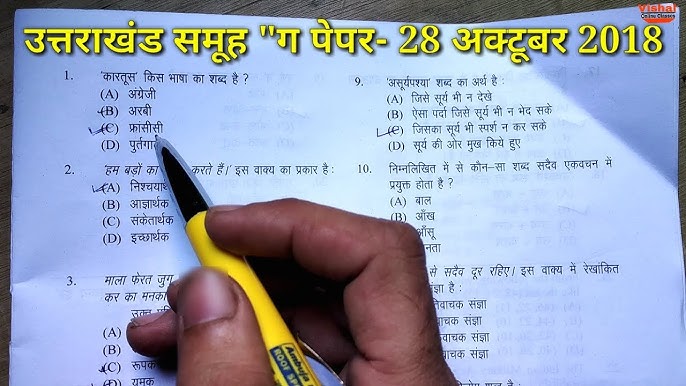 Vishal
Online Classes
उत्तराखंड समूह "ग पेपर- 28 अक्टूबर 2018
1. 'कारतूस' किस भाषा का शब्द है ?
(A) अंग्रेजी
(B) अरबी
(C) फ्रांसीसी
(D) पुर्तगा
2. 'हम बड़ों का करते हैं।' इस वाक्य का प्रकार है :
(A) निश्चया
(B) आज्ञार्थक
(C) संकेतार्थक
(D) इच्छार्थक
3. माला फेरत जुग
कर का मनका
(A)
(B)
(C) रूपक
(D) यमक
9. 'असूर्यपश्या' शब्द का अर्थ है :
(A) जिसे सूर्य भी न देखे
(B) ऐसा पर्दा जिसे सूर्य भी न भेद सके
(C) जिसका सूर्य भी स्पर्श न कर सके
(D) सूर्य की ओर मुख किये हुए
10. निम्नलिखित में से कौन-सा शब्द सदैव एकवचन में
प्रयुक्त होता है ?
(A) बाल
(B) आँख
आँसू
नता
से सदैव दूर रहिए। इस वाक्य में रेखांकित
संज्ञा है :
वाचक संज्ञा
वाचक संज्ञा
वाचक संज्ञा